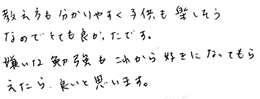 教え方も分かりやすく子供も楽しそう
なのでとても良かったです。
嫌いな勉強もこれから好きになってもら
えたら良いと思います。